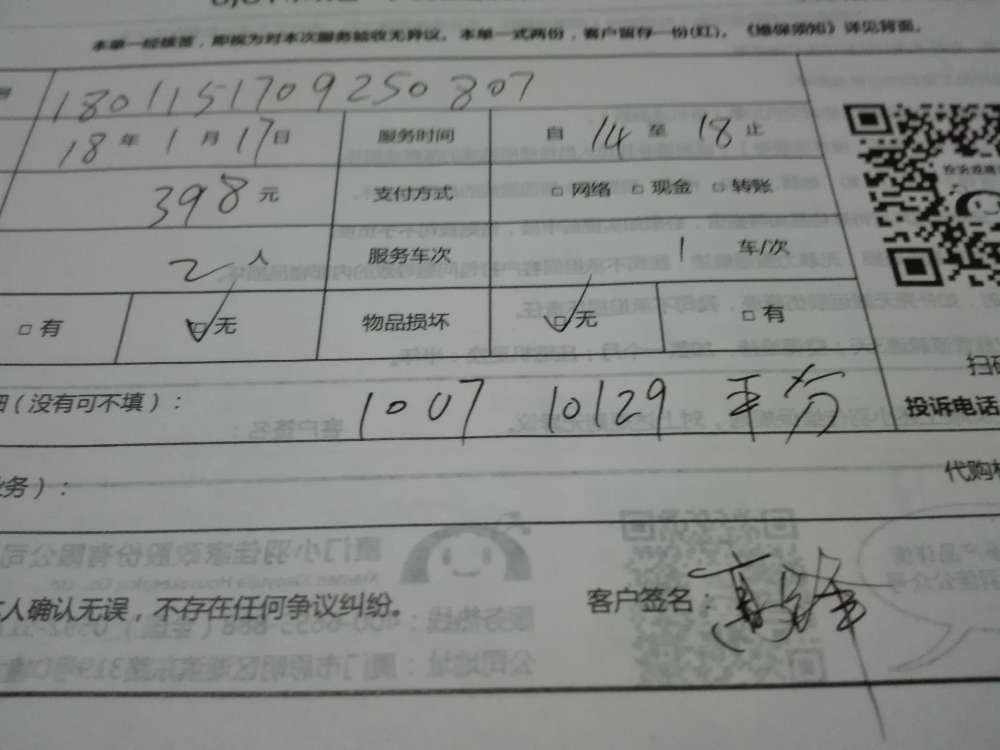 本单一经核签，即视为对本次服务验收无异议。本单一式两份，客户留存一份(红)。《维保须知》详见背面。
180115170925080​7
18 年 1 月 17 日 服务时间 自 14 至 18 止
398 元 支付方式 □ 网络 □ 现金 □ 转账
2 人 服务车次 1 车/次
□ 有 □ 无 物品损坏 □ 无 □ 有
（没有可不填）：
1007 10129 平分
扫码
投诉电话
务）：
代购
人确认无误，不存在任何争议纠纷。
客户签名：